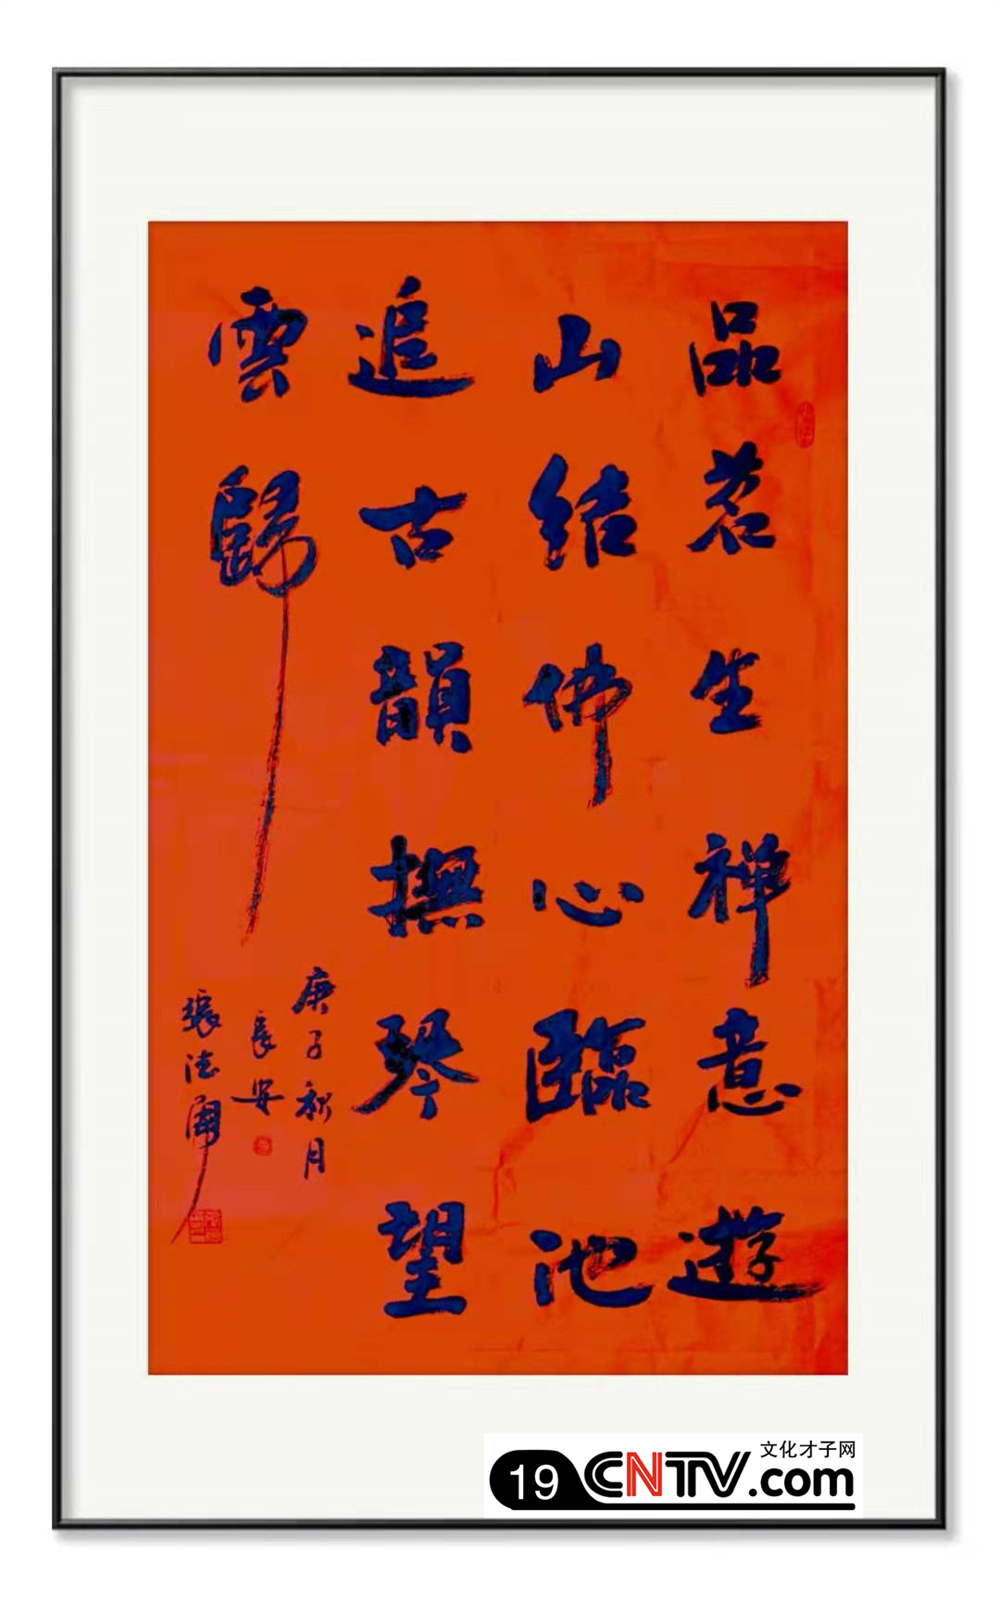 品茗生禅意遊
山结佛心臨池
追古韻撫琴望
雲歸
庚子秋月
長安
張德
文化才子网
19 CNTV.com